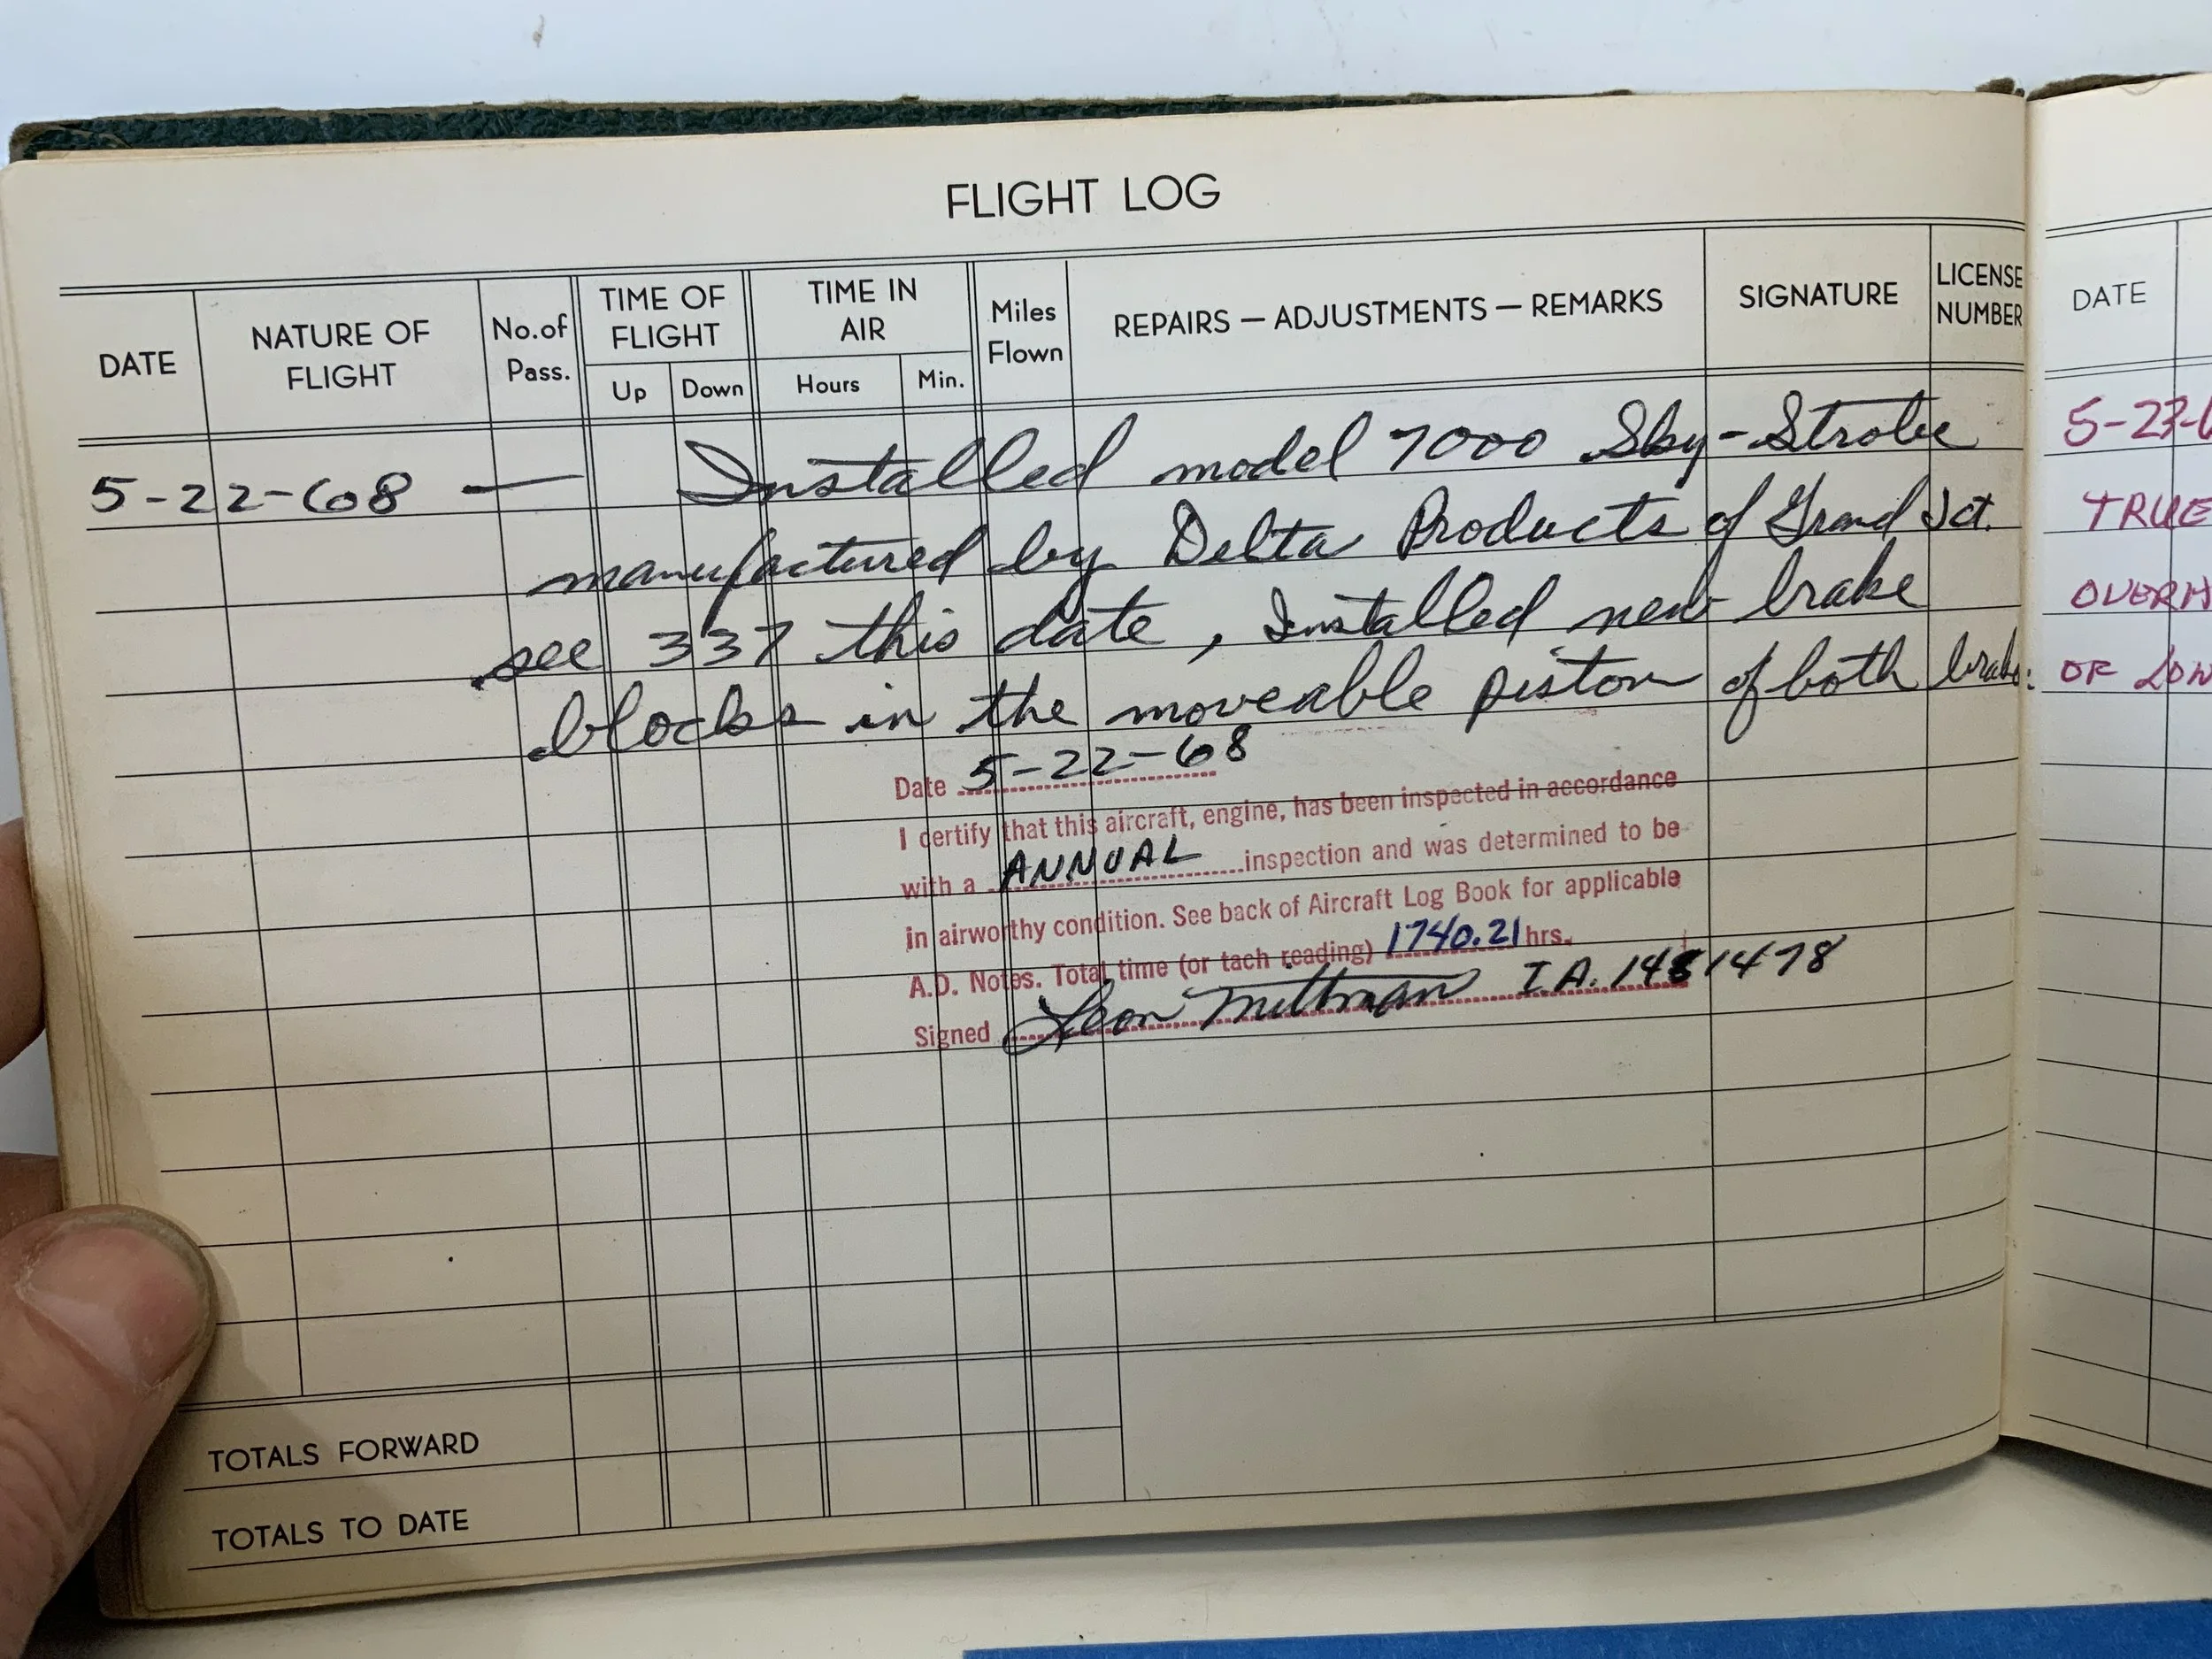 FLIGHT LOG
DATE NATURE OF FLIGHT No. of Pass. TIME OF FLIGHT TIME IN AIR Miles Flown REPAIRS — ADJUSTMENTS — REMARKS SIGNATURE LICENSE NUMBER
Up Down Hours Min.
5-22-68 — Installed model 7000 Sky-Strobe
manufactured by Delta Products of Grand Jct.
see 337 this date, Installed new brake
blocks in the moveable piston of both
Date 5-22-68
I certify that this aircraft, engine, has been inspected in accordance
with a ANNUAL inspection and was determined to be
in airworthy condition. See back of Aircraft Log Book for applicable
A.D. Notes. Total time (or tach reading) 1740.21 hrs.
Signed Leon Mittman I.A. 1481478
TOTALS FORWARD
TOTALS TO DATE
DATE
5-23-
TRUE
OVERH
OR LOW